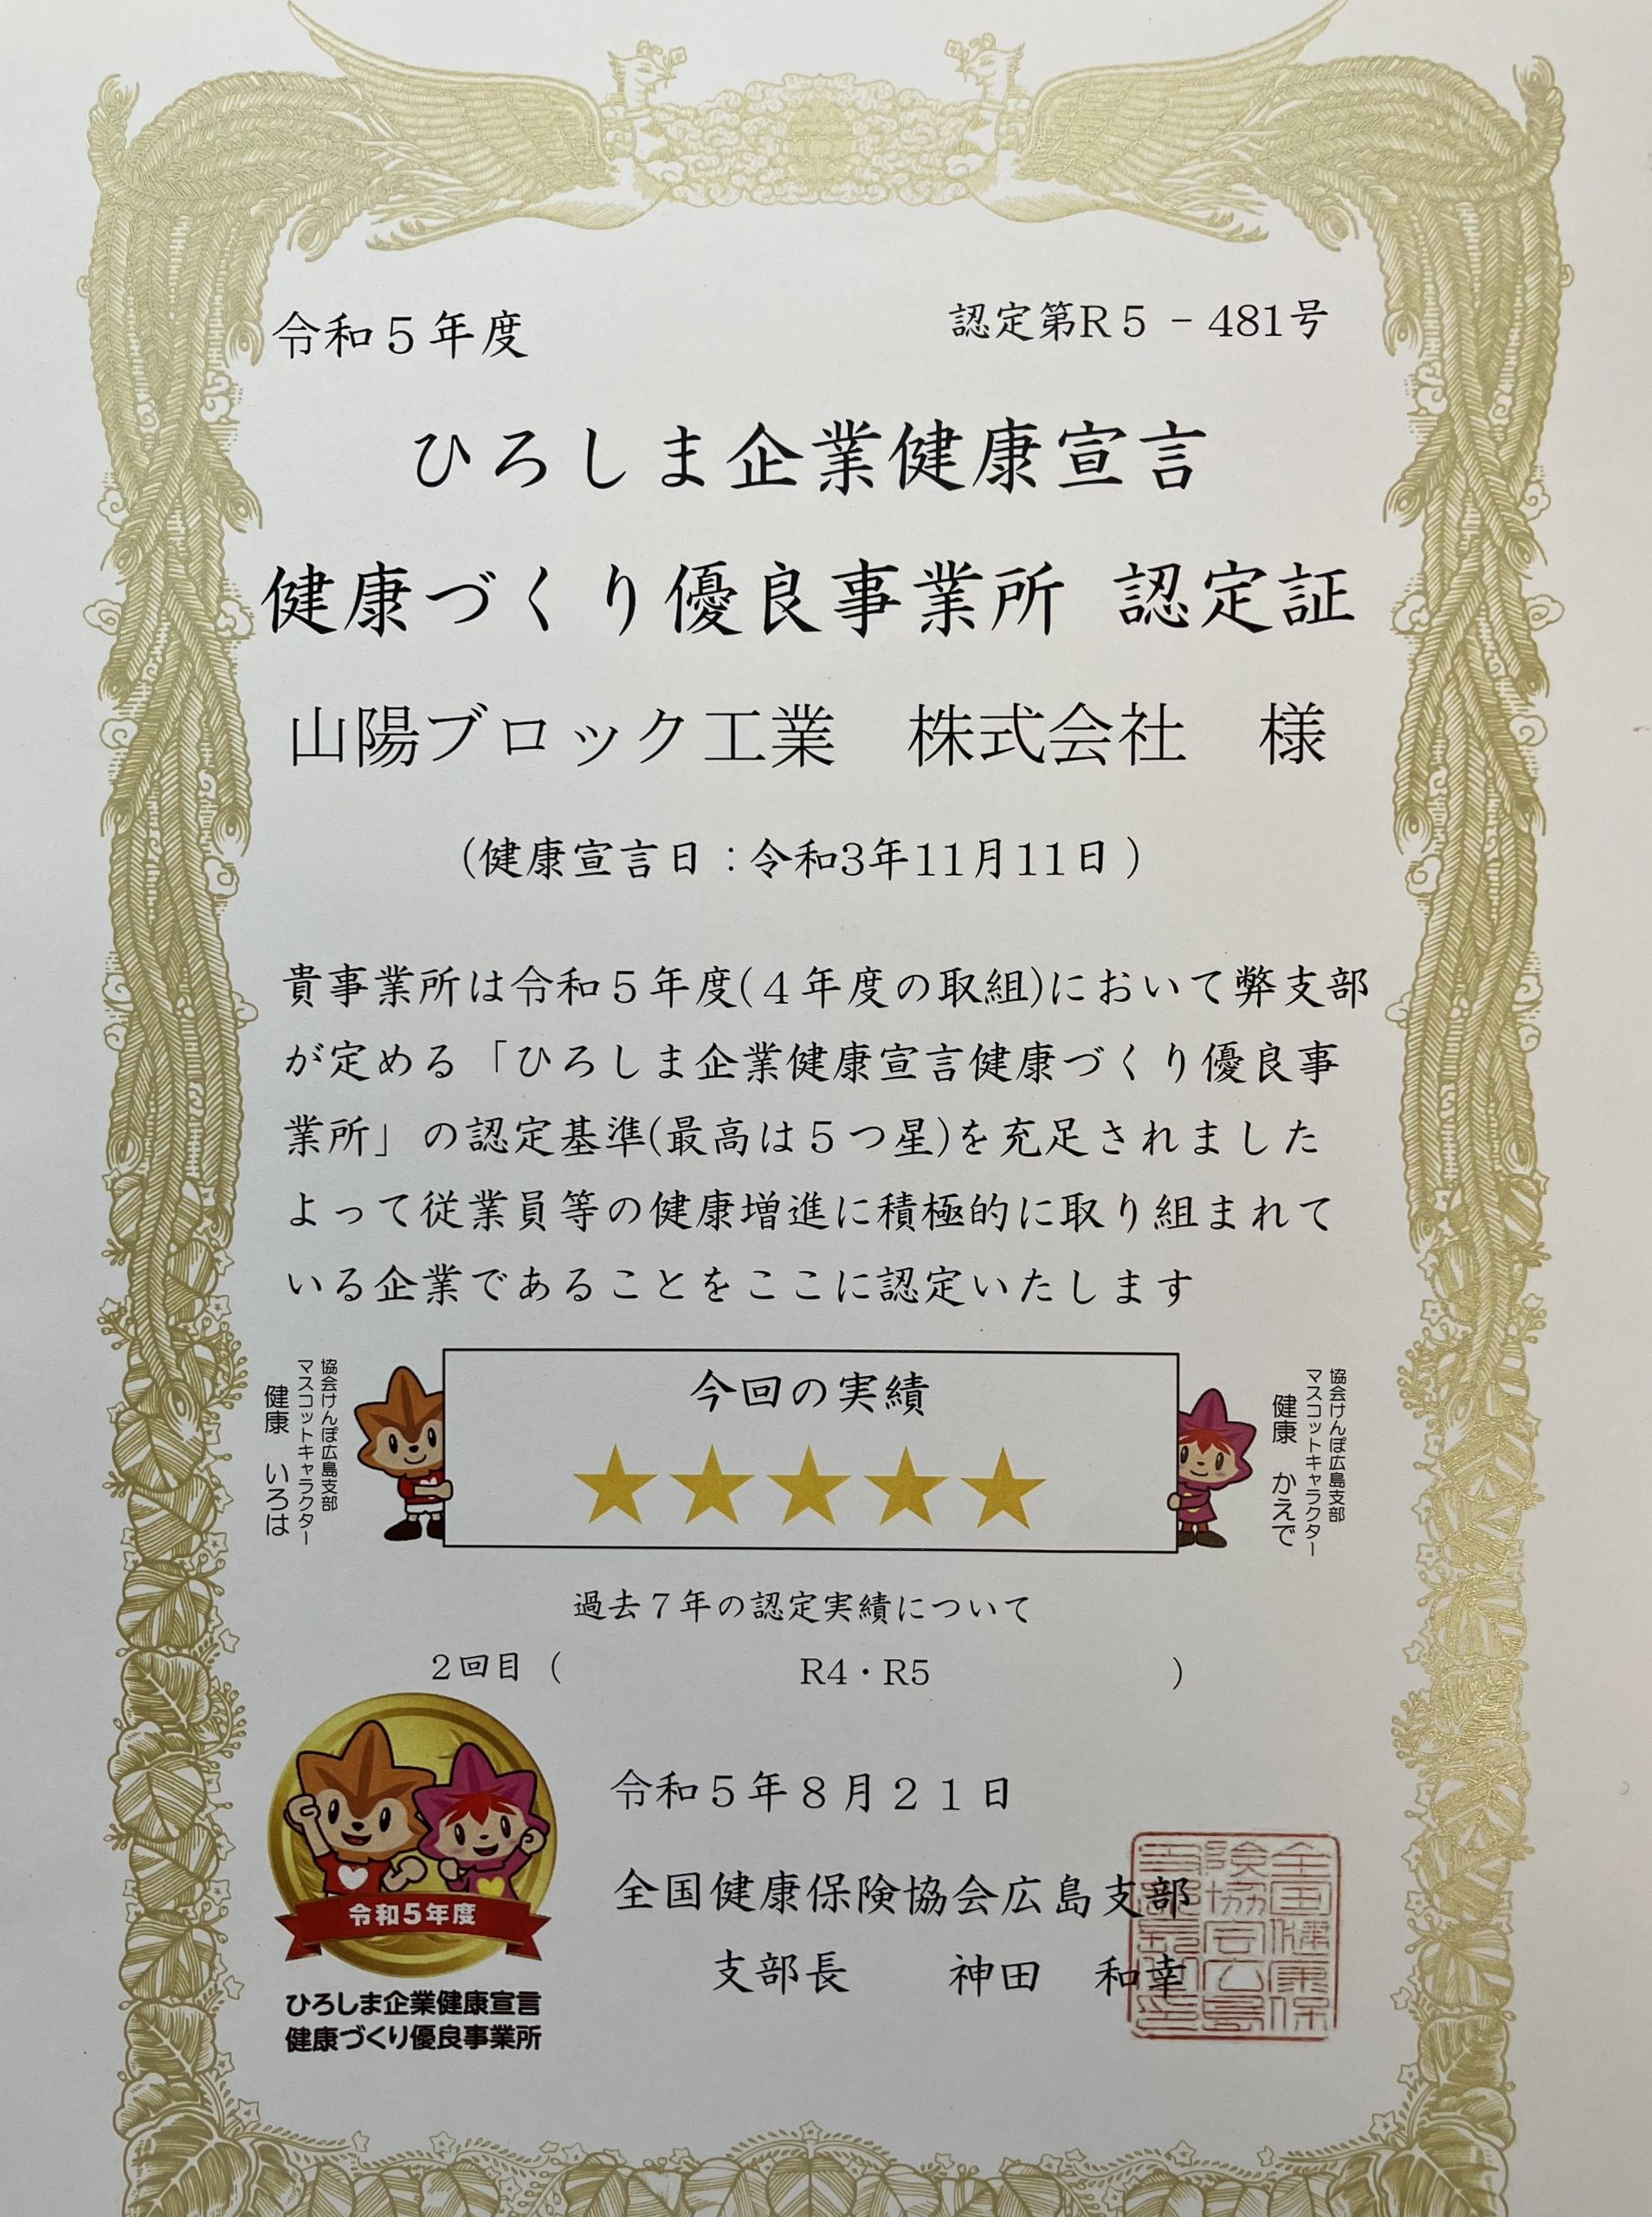 令和５年度
認定第R５－481号
ひろしま企業健康宣言
健康づくり優良事業所 認定証
山陽ブロック工業　株式会社　様
（健康宣言日：令和3年11月11日）
貴事業所は令和５年度(４年度の取組)において弊支部
が定める「ひろしま企業健康宣言健康づくり優良事
業所」の認定基準(最高は５つ星)を充足されました
よって従業員等の健康増進に積極的に取り組まれて
いる企業であることをここに認定いたします
協会けんぽ広島支部
マスコットキャラクター
健康　いろは
今回の実績
★★★★★
協会けんぽ広島支部
マスコットキャラクター
健康　かえで
過去７年の認定実績について
２回目（　R4・R5　）
令和５年８月２１日
全国健康保険協会広島支部
支部長　神田　和幸
令和5年度
ひろしま企業健康宣言
健康づくり優良事業所